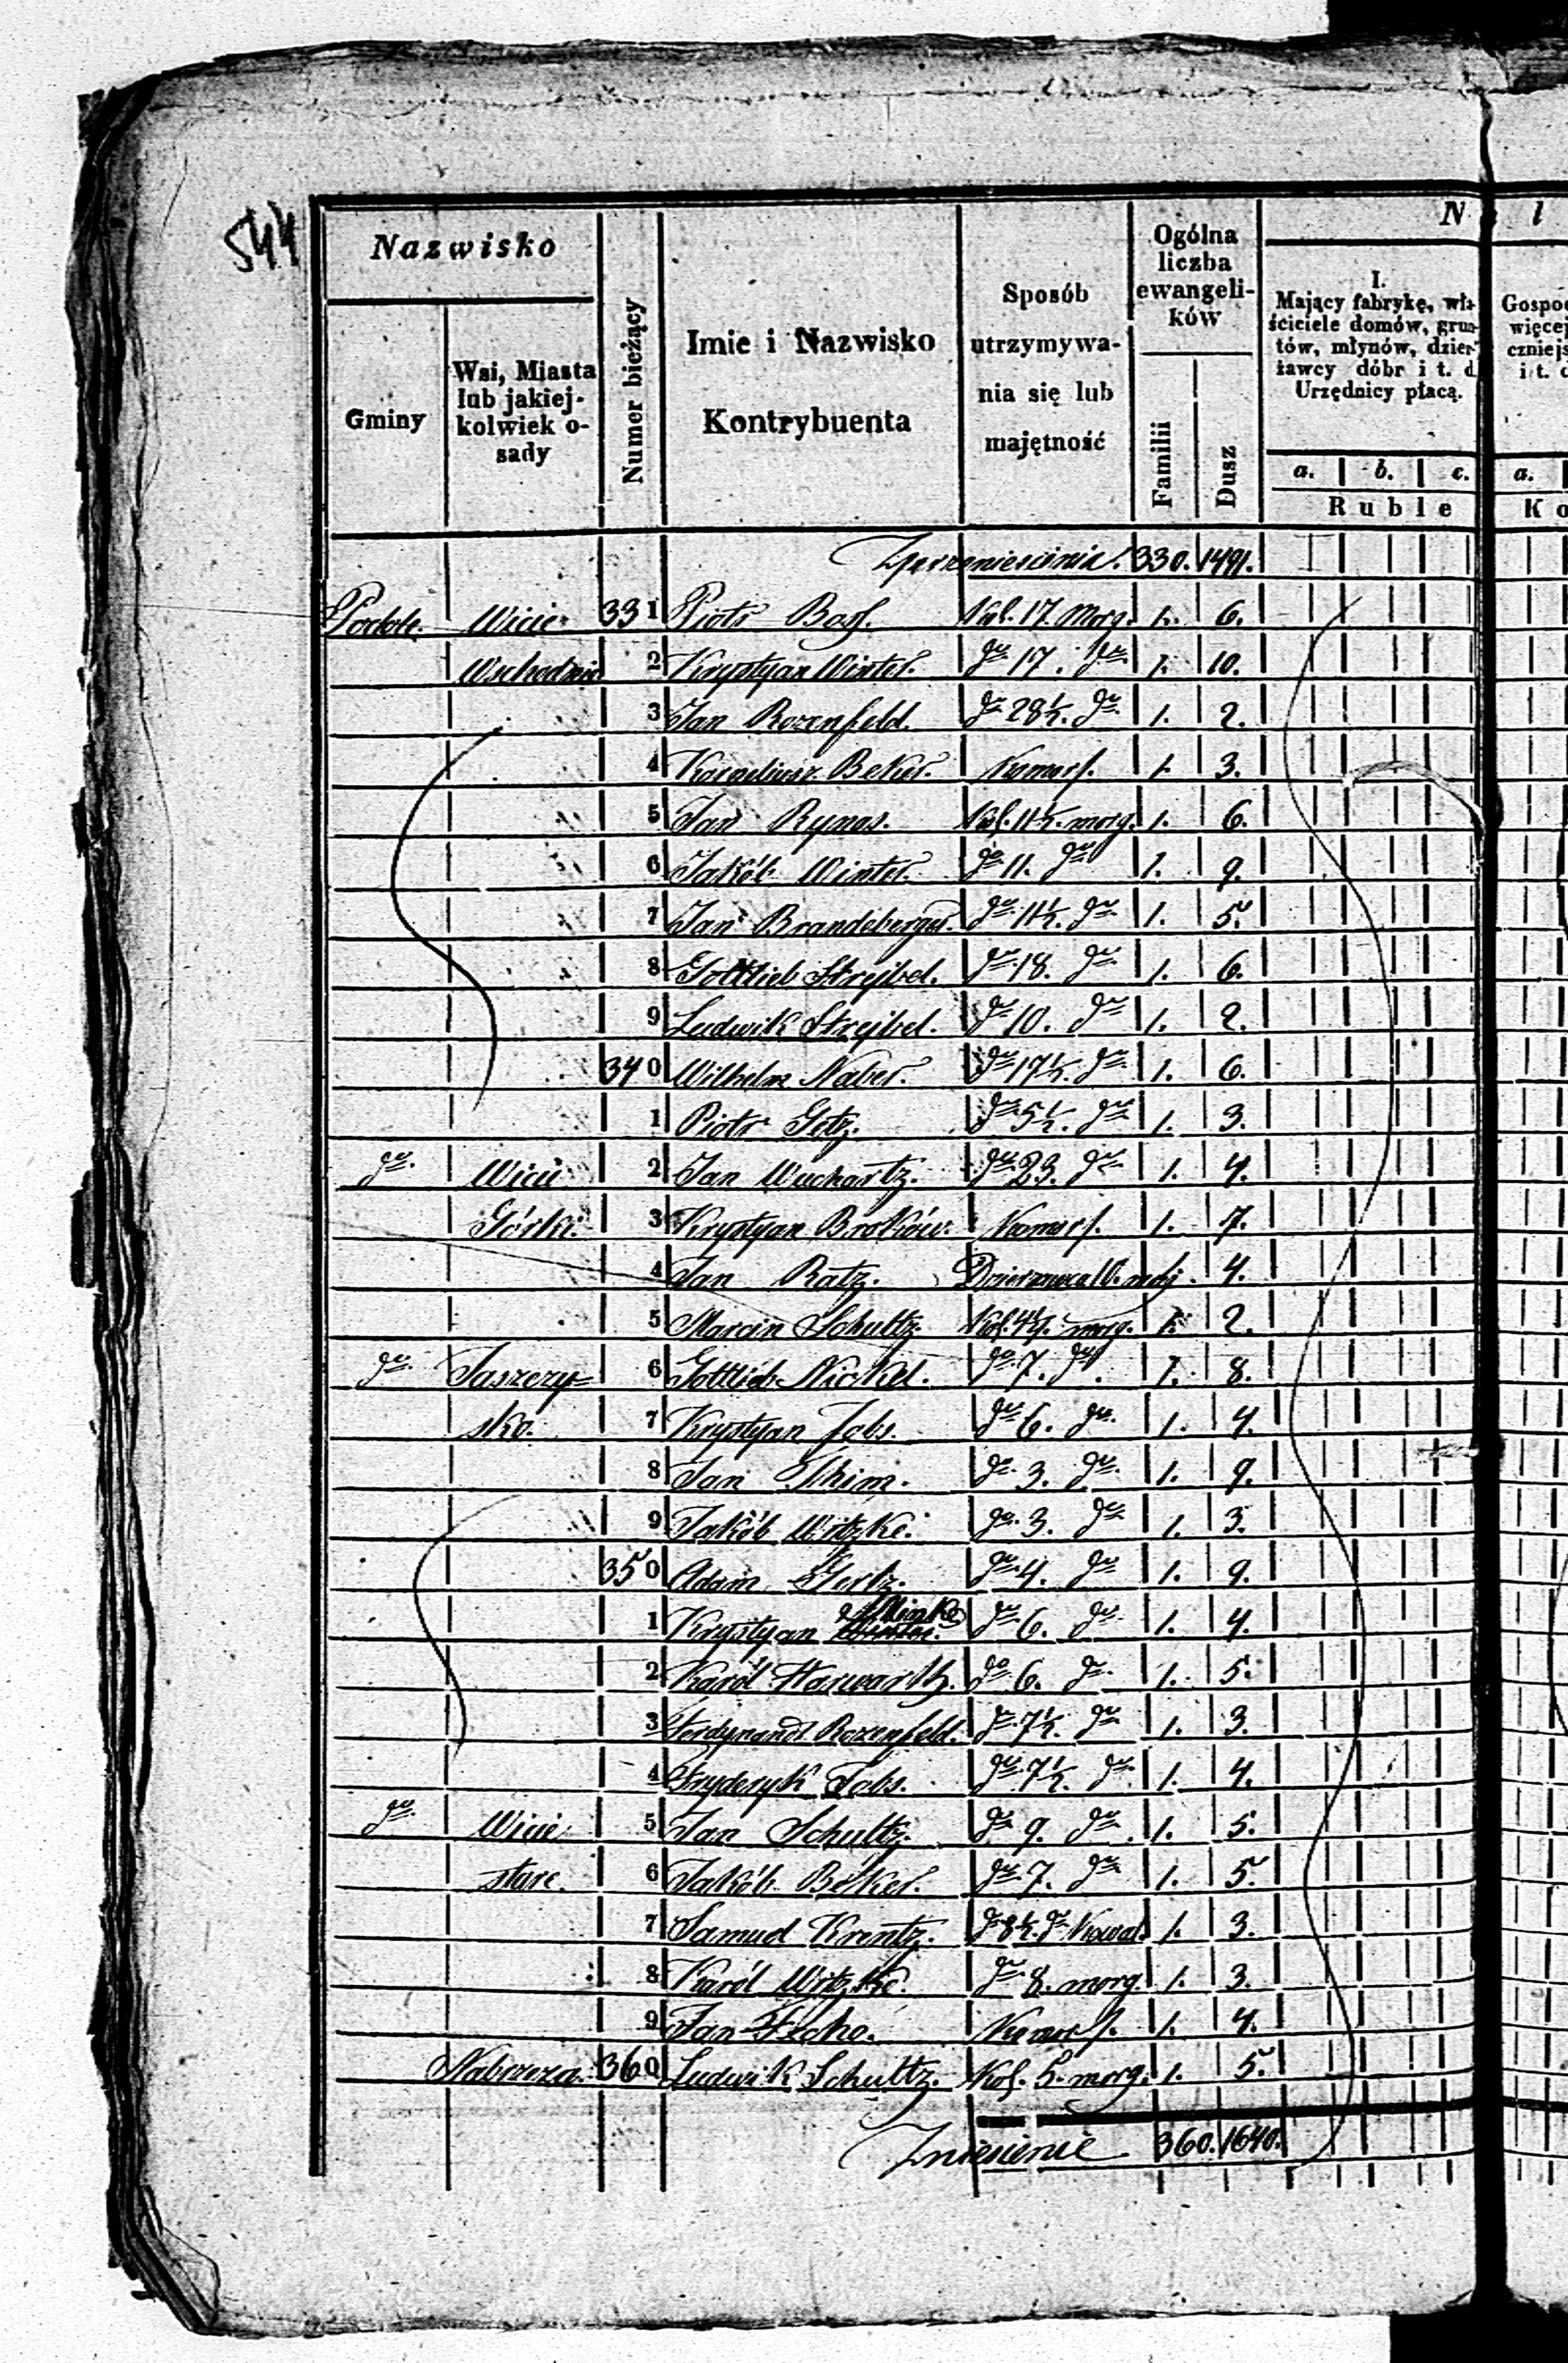 544
Nazwisko
Gminy
Wsi, Miasta lub jakiej-kolwiek o-sady
Numer bieżący
Imie i Nazwisko Kontrybuenta
Sposób utrzymywa-nia się lub majętność
Ogólna liczba ewangeli-ków
Familii
Dusz
N
I. Mający fabrykę, wła-ściciele domów, grun-tów, młynów, dzier-żawcy dóbr i t. d. Urzędnicy płacą.
a. b. c.
Ruble
Gospo
więcej
czniejs
i t. d
a.
Ko
Z przeniesienia. 330. 1491.
Podole. Wicie 331 Piotr Bass. Kol. 17. Morg. 1. 6.
Wschodnie 2 Krystyan Winter. do 17. do 1. 10.
3 Jan Rozenfeld. do 28½. do 1. 2.
4 Korneliusz Beker. Komor. 1. 3.
5 Jan Rynas. Kol. 11½. morg. 1. 6.
6 Jakób Winter. do 11. do 1. 9.
7 Jan Brandeberger. do 11½. do 1. 5.
8 Gottlieb Strejbel. do 18. do 1. 6.
9 Ludwik Strejbel. do 10. do 1. 2.
340 Wilhelm Naber. do 17½. do 1. 6.
1 Piotr Getz. do 5½. do 1. 3.
do Wicie 2 Jan Wuchartz. do 23. do 1. 4.
Górki. 3 Krystyan Broków. Komor. 1. 7.
4 Jan Ratz. 4.
5 Marcin Schultz. Kol. morg. 1. 2.
do Jaszczy= 6 Gottlieb Nickel. do 7. do 1. 8.
sko. 7 Krystyan Jabs. do 6. do 1. 4.
8 Jan Thim. do 3. do 1. 9.
9 Jakób Witzke. do 3. do 1. 3.
350 Adam Gertz. do 4. do 1. 9.
1 Krystyan Minke do 6. do 1. 4.
2 Karól Harwarth. do 6. do 1. 5.
3 Ferdynand Rozenfeld. do 7½. do 1. 3.
4 Fryderyk Jabs. do 7½. do 1. 4.
do Wicie 5 Jan Schultz. do 9. do 1. 5.
stare. 6 Jakób Beker. do 7. do 1. 5.
7 Samuel Krentz. do 8½. do Kowal 1. 3.
8 Karól Witzke. do 8. morg. 1. 3.
9 Jan Komor. 1. 4.
Nabrzeza. 360 Ludwik Schultz. Kol. 5. morg. 1. 5.
Zniesienie 360. 1640.